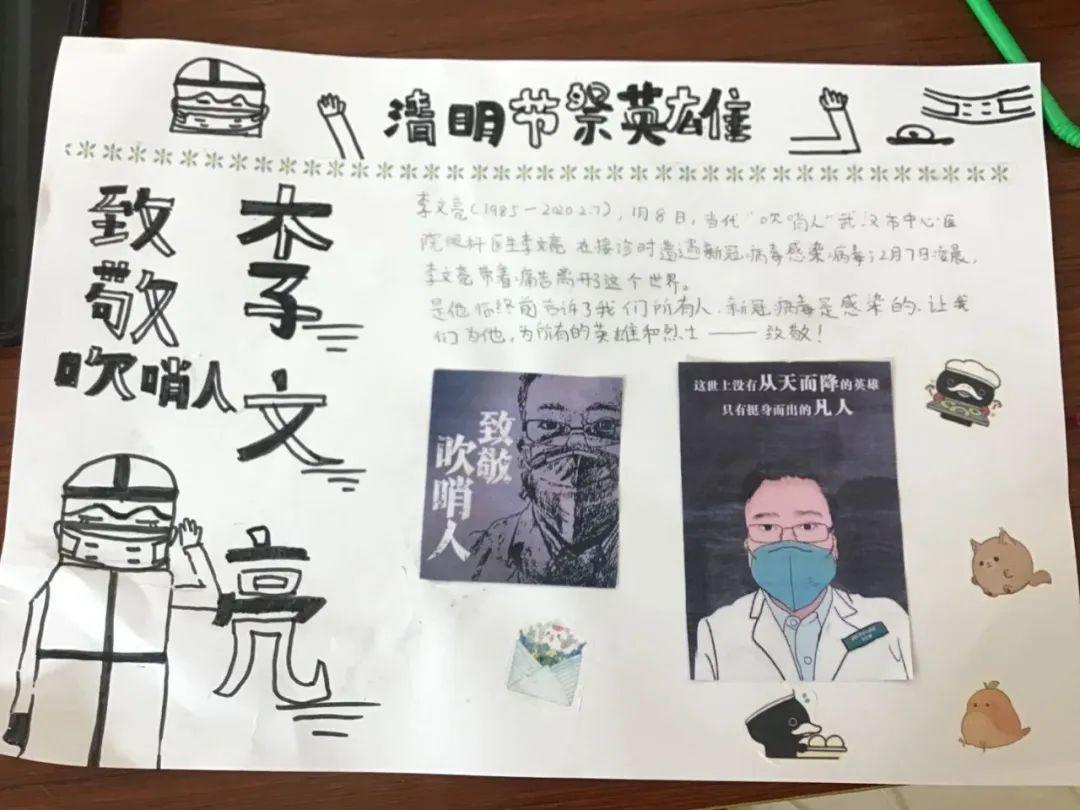 清明节祭英雄
致敬
吹哨人
李文亮
李文亮(1985—2020.2.7),1月8日,当代"吹哨人"武汉市中心医
院眼科医生李文亮 在接诊时遭遇新冠病毒感染病毒;2月7日凌晨,
李文亮带着痛苦离开了这个世界。
是他临终前告诉了我们所有人,新冠病毒是感染的,让我
们为他,为所有的英雄和烈士——致敬!
致敬
吹哨人
这世上没有从天而降的英雄
只有挺身而出的凡人